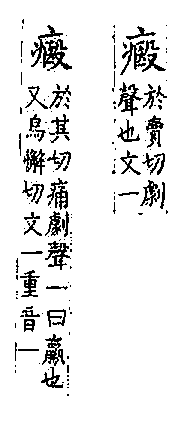 於賣切劇
聲也文一
於其切痛劇聲一曰羸也
又烏懈切文一重音一